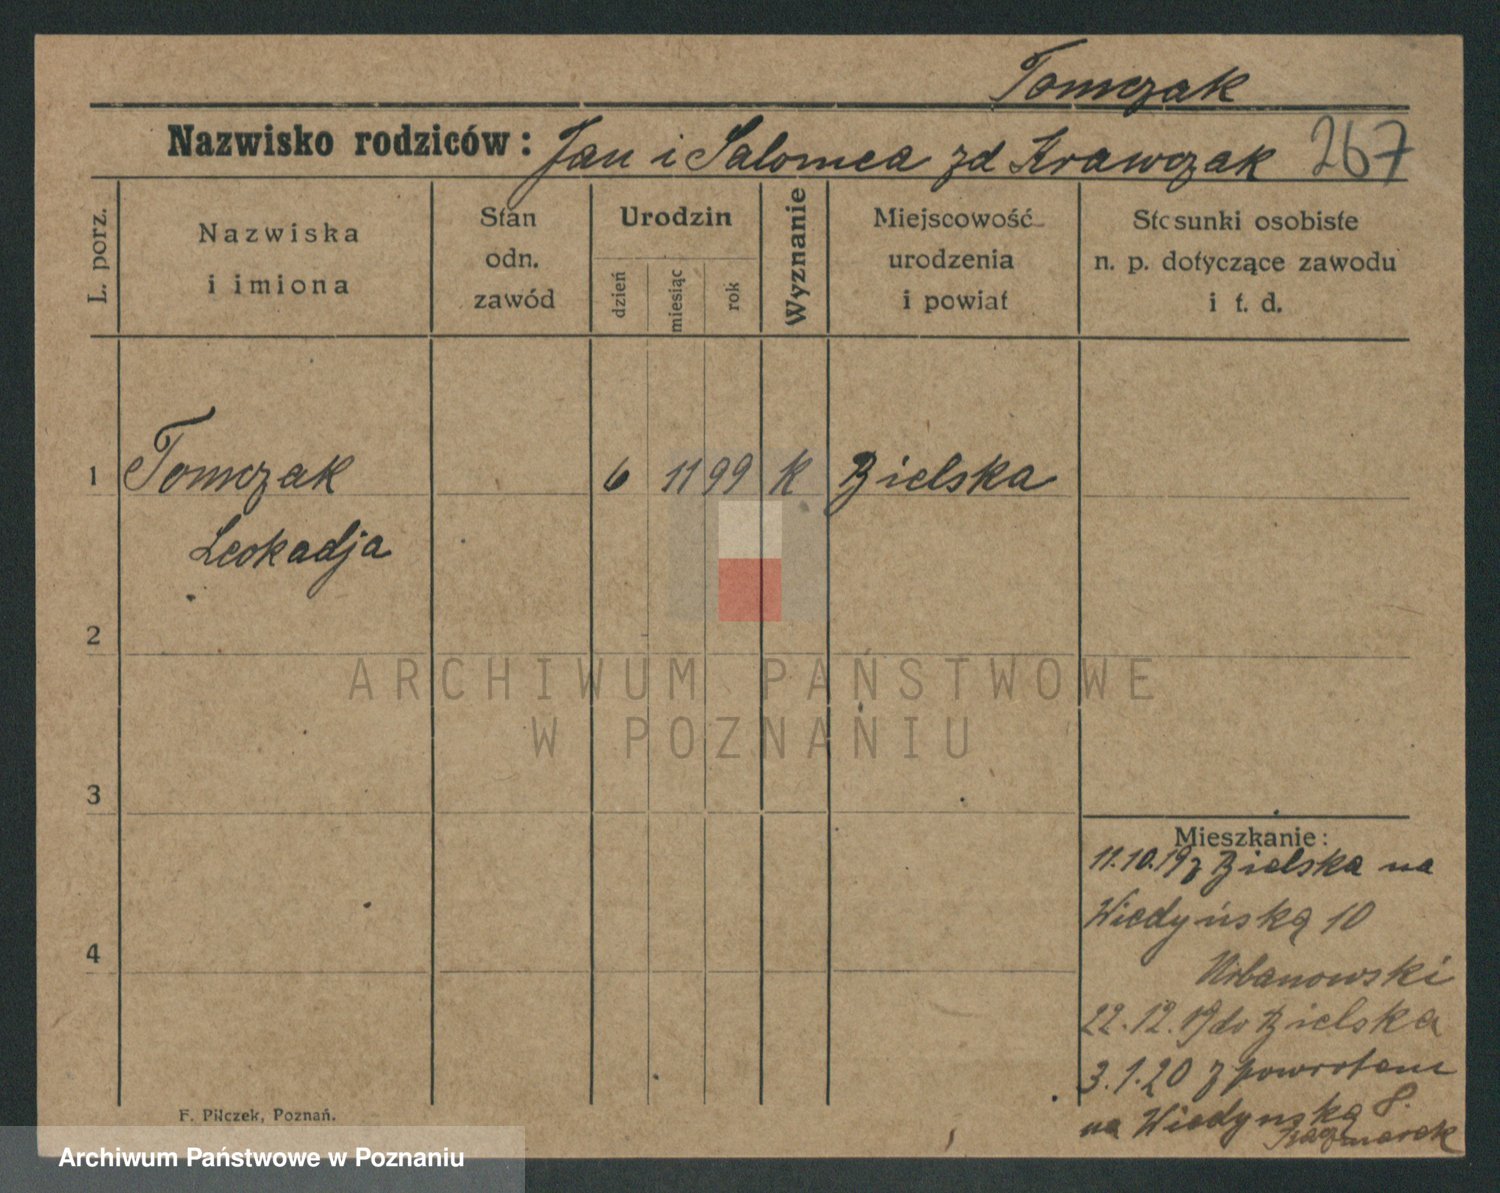 Tomczak
Nazwisko rodziców: Jan i Salomea zd Krawczak 267
L. porz.
Nazwiska
i imiona
Stan
odn.
zawód
Urodzin
dzień
miesiąc
rok
Wyznanie
Miejscowość
urodzenia
i powiat
Stosunki osobiste
n. p. dotyczące zawodu
i t. d.
1 Tomczak 6 11 99 k Bielska
Leokadja
2
ARCHIWUM PAŃSTWOWE
W POZNANIU
3
Mieszkanie:
11.10.19 z Bielska na
Wiedyńską 10
Urbanowski
4
22.12.19 do Bielska
3.1.20 z powrotem
na Wiedynską 8.
Kaczmarek
F. Pilczek, Poznań.
Archiwum Państwowe w Poznaniu